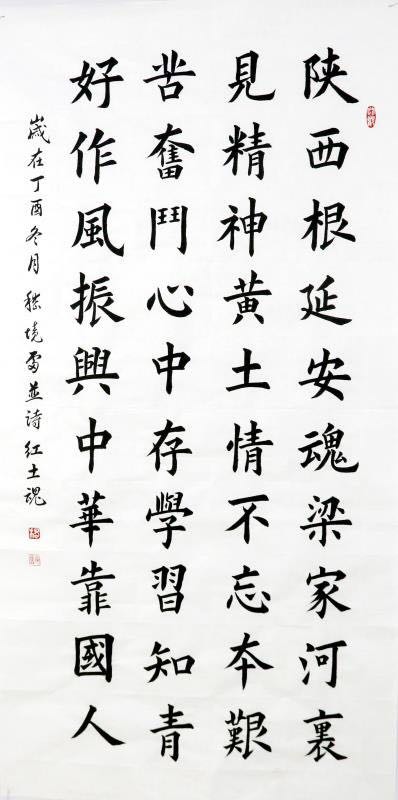 陕西根延安魂梁家河裏
見精神黄土情不忘本艱
苦奮鬥心中存學習知青
好作風振興中華靠國人
歲在丁酉冬月並诗红土魂